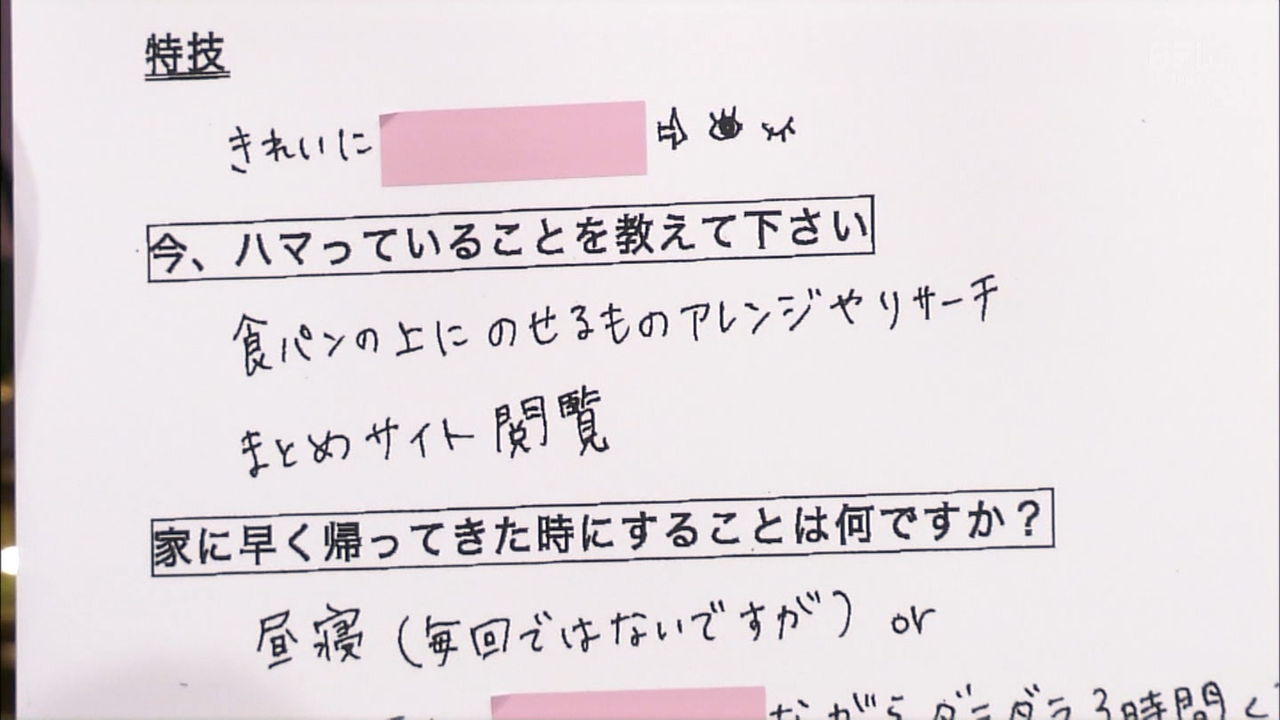 特技
きれいに
今、ハマっていることを教えて下さい
食パンの上にのせるものアレンジやリサーチ
まとめサイト閲覧
家に早く帰ってきた時にすることは何ですか？
昼寝（毎回ではないですが）or
ながらダラダラ3時間く